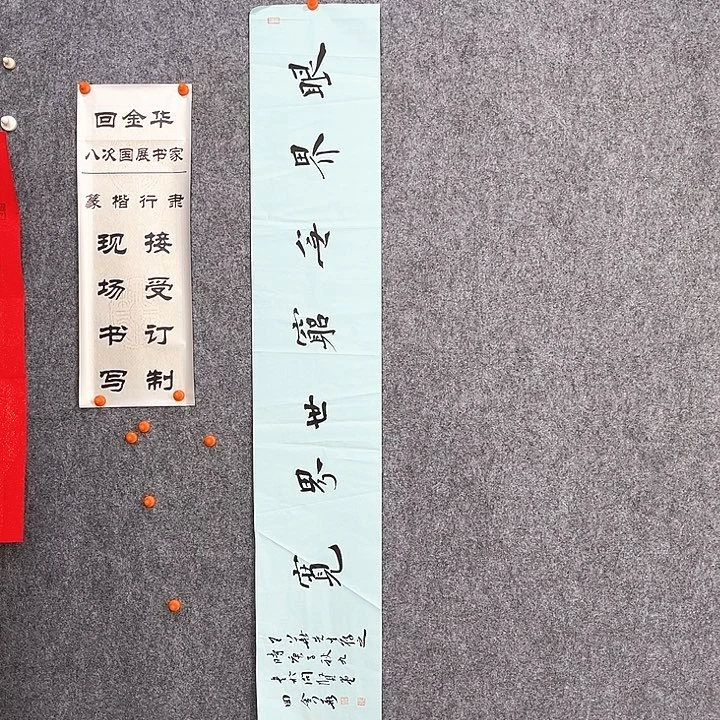 回金华
八次国展书家
篆楷行隶
接受订制
现场书写
眼界无穷世界宽